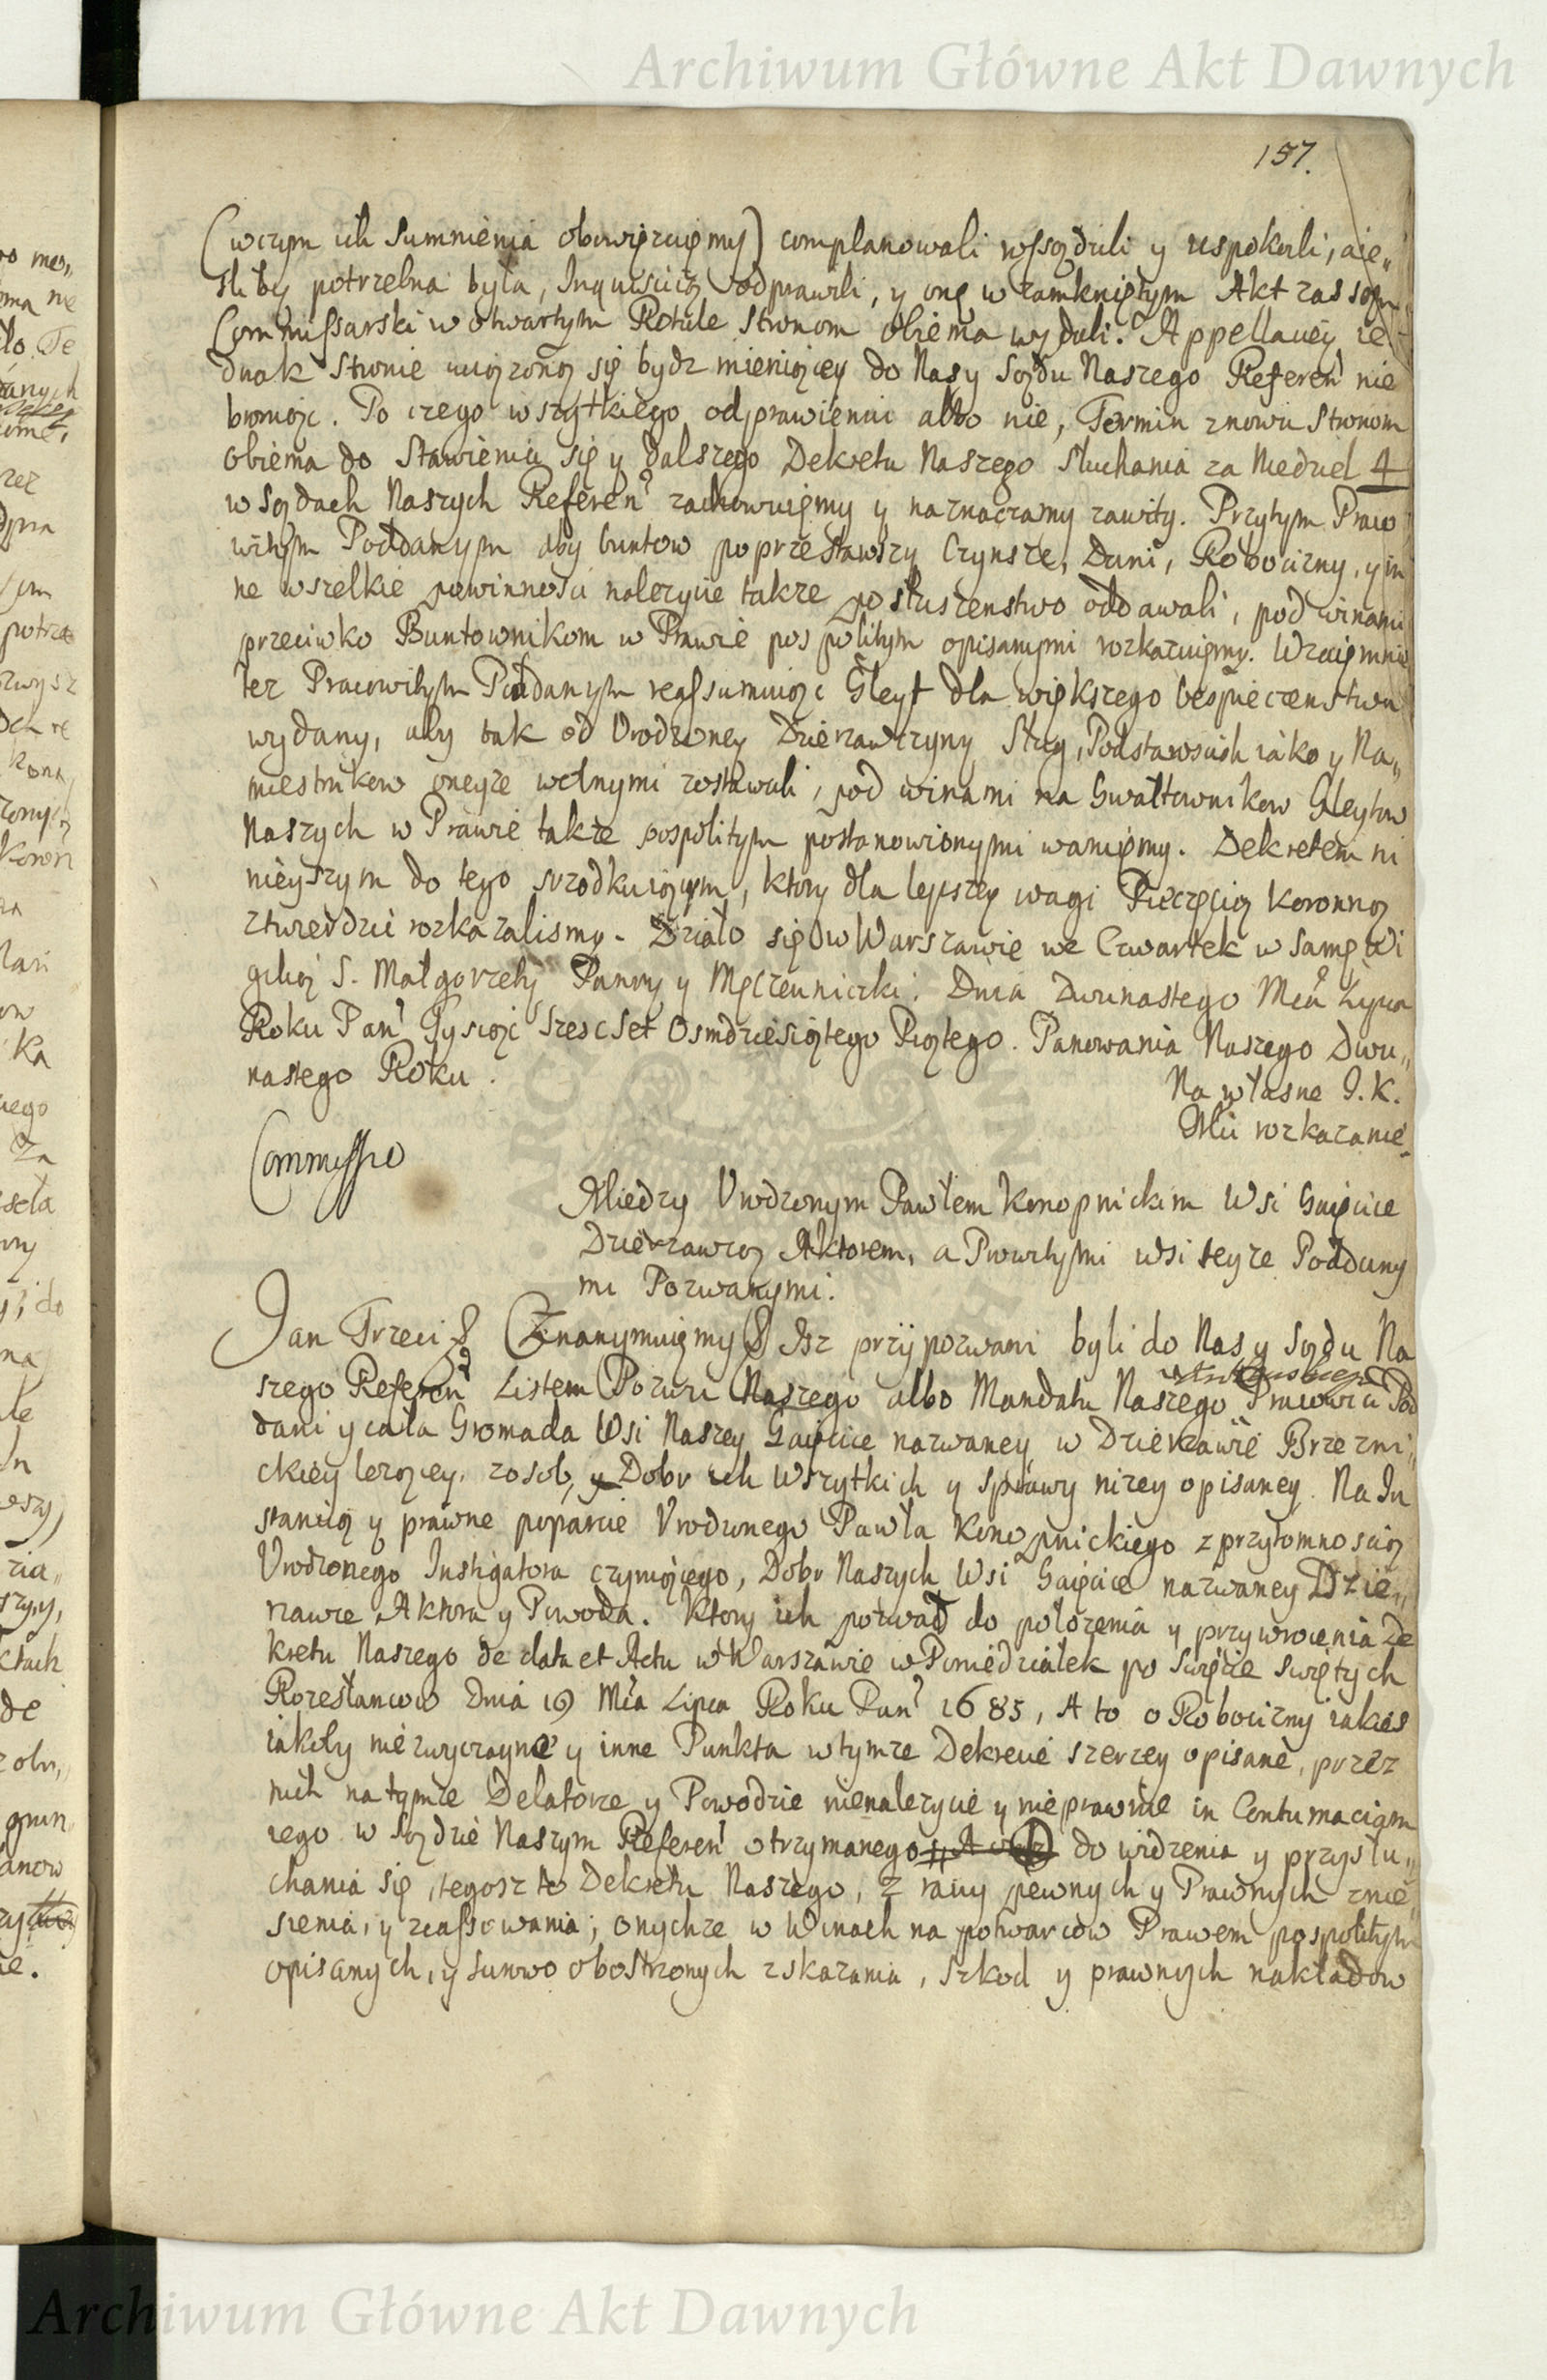 Archiwum Główne Akt Dawnych
157.
(wczym ich Sumnienia obowięzuięmy) complanowali rossądzili y uspokoili, a ie„
sliby potrzebna była, Inquisicią odprawili, y onę w zamkniętym Akt zas sam
Commissarski w otwartym Rotule Stronom obiema wydali. Appellacyey ie
dnak Stronie uciązoną się bydz mieniącey do Nas y Sądu Naszego Referen nie
broniąc. Po czego wszytkiego odprawieniu albo nie, Termin znowu Stronom
obiema do Stawienia się y dalszego Dekretu Naszego słuchania za Niedziel 4
w Sądach Naszych Referen zachowuięmy y naznaczamy zawity. Przytym Praco
witym Poddanym aby buntow poprzestawszy Czynsze, Dani, Robocizny, y in
ne wszelkie powinnosci nalezycie takze posłuszenstwo oddawali, pod winami
przeciwko Buntownikom w Prawie pospolitym opisanymi rozkazuięmy. Wzaięmnie
tez Pracowitym Poddanym reassumuiąc Gleyt dla większego bespieczenstwa
wydany, aby tak od Urodzoney Dzierzawczyny Sług, Podstaroscich iako y Na„
miestnikow oneyze wolnymi zostawali, pod winami na Gwałtownikow Gleytow
Naszych w Prawie takze pospolitym postanowionymi waruięmy. Dekretem ni
nieyszym do tego srzodkuiącym, ktory dla lepszey wagi Pieczęcią Koronną
ztwierdzic rozkazalismy. Działo się w Warszawie we Czwartek w samę Wi
gilią S. Małgorzety Panny y Męczenniczki. Dnia Dwunastego Mca Lipca
Roku Pan Tysiąc Szescset Osmdziesiątego Piątego. Panowania Naszego Dwu„
nastego Roku.
Na własne J. K.
Mci rozkazanie.
Commissio
Miedzy Urodzonym Pawłem Konopnickim Wsi Gaięcice
Dzierzawcą Aktorem, a Prwitymi wsi teyze Poddany
mi Pozwanymi.
Jan Trzeci Oznaymuięmy Isz przypozwani byli do Nas y Sądu Na
szego Referen Listem Pozwu Naszego albo Mandatu Naszego Pracowici Pod
dani y cała Gromada Wsi Naszey Gaięcice nazwaney w Dzierzawie Brzezni
ckiey lezącey, z osob, y Dobr ich Wszytkich y sprawy nizey opisaney. Na In
stancią y prawne poparcie Urodzonego Pawła Konopnickiego z przytomnoscią
Urodzonego Instigatora czyniącego, Dobr Naszych Wsi Gaięcice nazwaney Dzie„
rzawce Aktora y Powoda. Ktory ich pozwał do połozenia y przywrocenia De
kretu Naszego de data et Actu w Warszawie w Poniedziałek po Swięcie Swiętych
Rozesłancow Dnia 19 Mca Lipca Roku Pan 1685, A to o Robocizny iakies
iakoby niezwyczayne y inne Punkta wtymze Dekrecie szerzey opisane, przez
nich na tymze Delatorze y Powodzie nienalezycie y nieprawnie in Contumaciam
iego w Sądzie Naszym Referen otrzymanego do widzenia y przysłu„
chania się, tegosz to Dekretu Naszego, z racyy pewnych y Prawnych znie
sienia, y zcassowania; onychze w Winach na potwarcow Prawem pospolitym
opisanych, y surowo obostrzonych zskazania, szkod y prawnych nakładow
Archiwum Główne Akt Dawnych